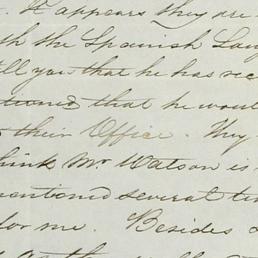 . It appears they are
the Spanish Law
tell you that he has rec
that he wou
their Office. They
think Mr Watson is
mentioned several ti
for me. Besides